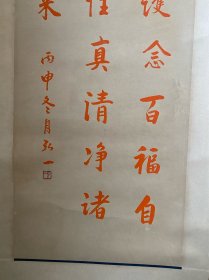 護念百福自
性真清净諸
来
丙申冬月弘一